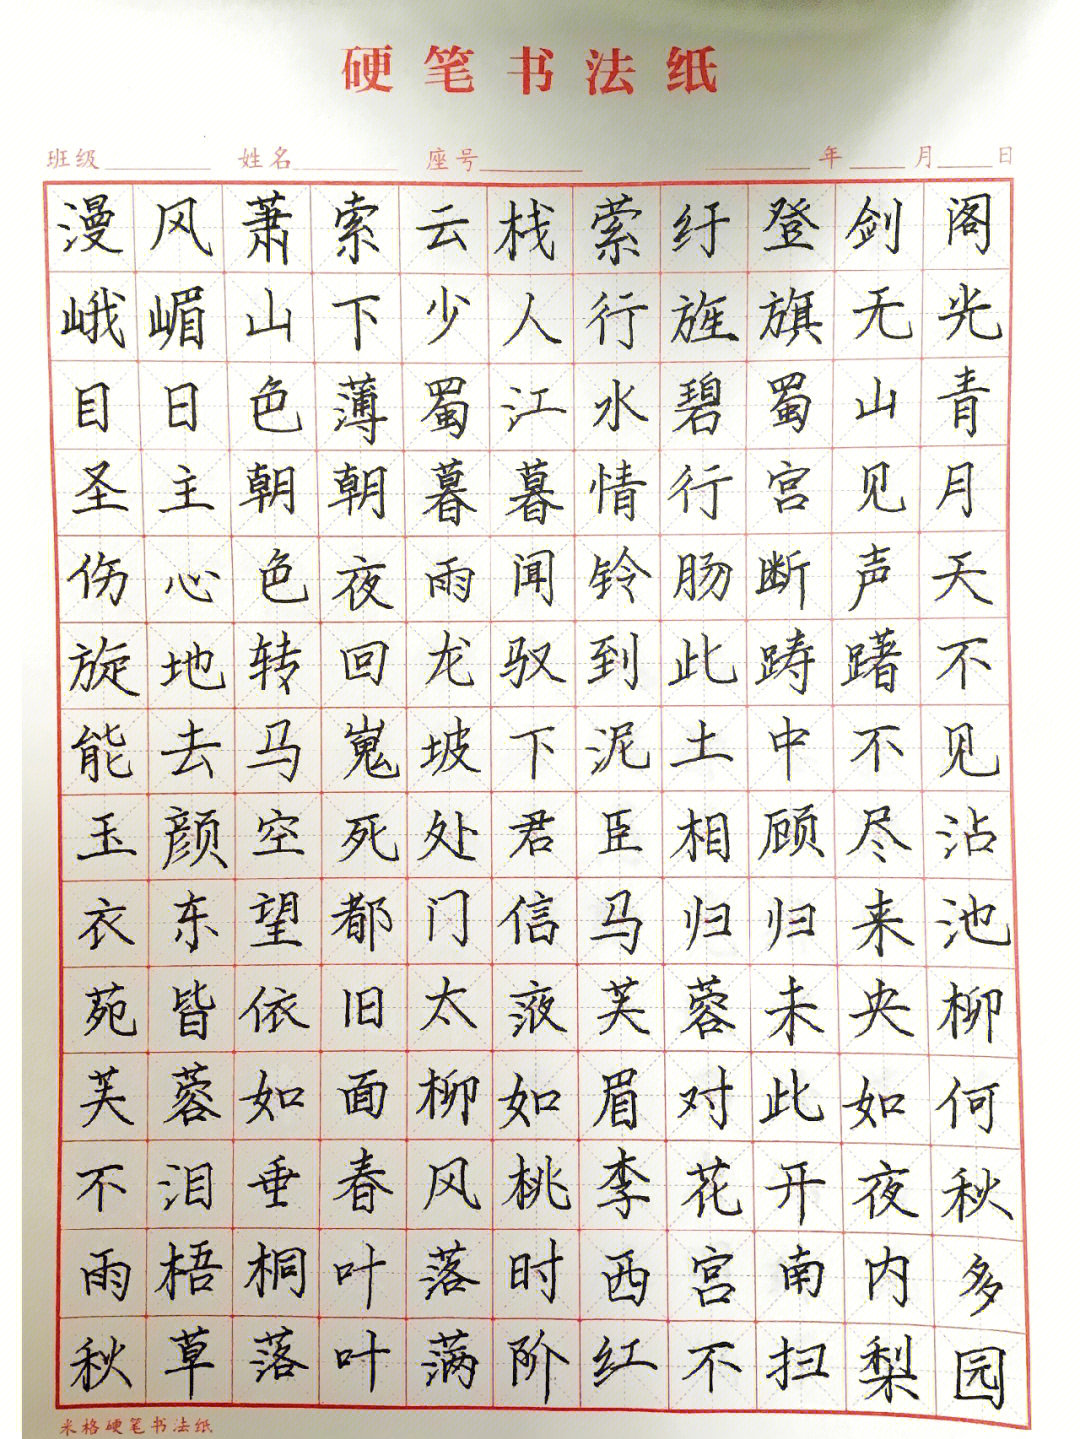 硬笔书法纸
班级 姓名 座号 年 月 日
漫风萧索云栈萦纡登剑阁
峨嵋山下少人行旌旗无光
目日色薄蜀江水碧蜀山青
圣主朝朝暮暮情行宫见月
伤心色夜雨闻铃肠断声天
旋地转回龙驭到此踌躇不
能去马嵬坡下泥土中不见
玉颜空死处君臣相顾尽沾
衣东望都门信马归归来池
苑皆依旧太液芙蓉未央柳
芙蓉如面柳如眉对此如何
不泪垂春风桃李花开夜秋
雨梧桐叶落时西宫南内多
秋草落叶满阶红不扫梨园
米格硬笔书法纸